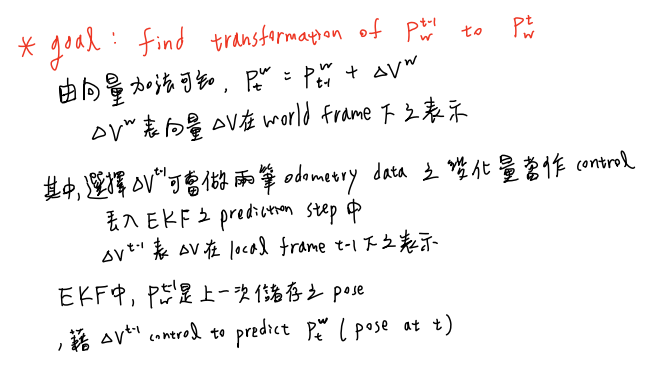 * goal : find transformation of P_w^{t-1} to P_w^t
由向量加法可知, P_t^w = P_{t-1}^w + ΔV^w
ΔV^w 表向量 ΔV在 world frame 下之表示
其中, 選擇 ΔV^{t-1} 可當做兩筆 odometry data 之變化量當作 control
丟入 EKF 之 prediction step 中
ΔV^{t-1} 表 ΔV 在 local frame t-1 下之表示
EKF中, P_w^{t-1} 是上一次儲存之 pose
, 藉 ΔV^{t-1} control to predict P_t^w ( pose at t )